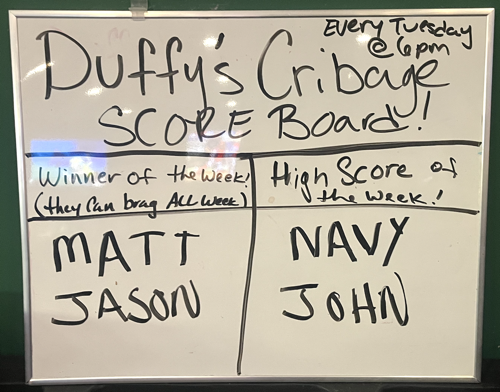 Every Tuesday
@ 6pm
Duffy's Cribage
SCORE Board!
Winner of the week!
(they can brag ALL week)
High Score of
the week!
MATT
JASON
NAVY
JOHN